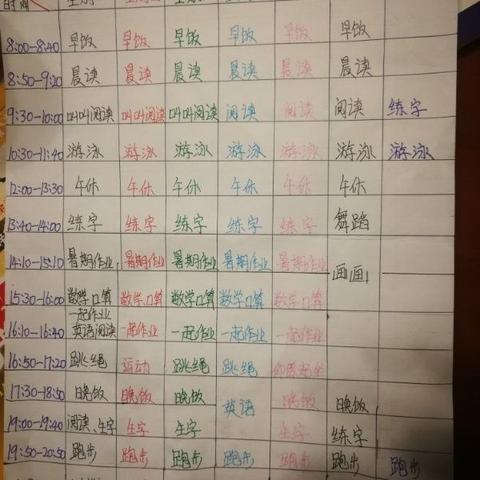 时间
8:00-8:40 早饭 早饭 早饭 早饭 早饭 早饭
8:50-9:20 晨读 晨读 晨读 晨读 晨读 晨读
9:30-10:00 叫叫阅读 叫叫阅读 叫叫阅读 阅读 阅读 阅读 练字
10:30-11:40 游泳 游泳 游泳 游泳 游泳 游泳 游泳
12:00-13:30 午休 午休 午休 午休 午休 午休
13:40-14:00 练字 练字 练字 练字 练字 舞蹈
14:10-15:10 暑期作业 暑期作业 暑期作业 暑期作业 暑期作业 画画
15:30-16:00 数学口算 数学口算 数学口算 数学口算 数学口算
16:10-16:40 一起作业 英语阅读 一起作业 一起作业 一起作业 一起作业
16:50-17:20 跳绳 运动 跳绳 跳绳 仰卧起坐
17:30-18:50 晚饭 晚饭 晚饭 英语 晚饭 晚饭
19:00-19:40 阅读、生字 生字 生字 生字 练字
19:50-20:50 跑步 跑步 跑步 跑步 跑步 跑步 跑步